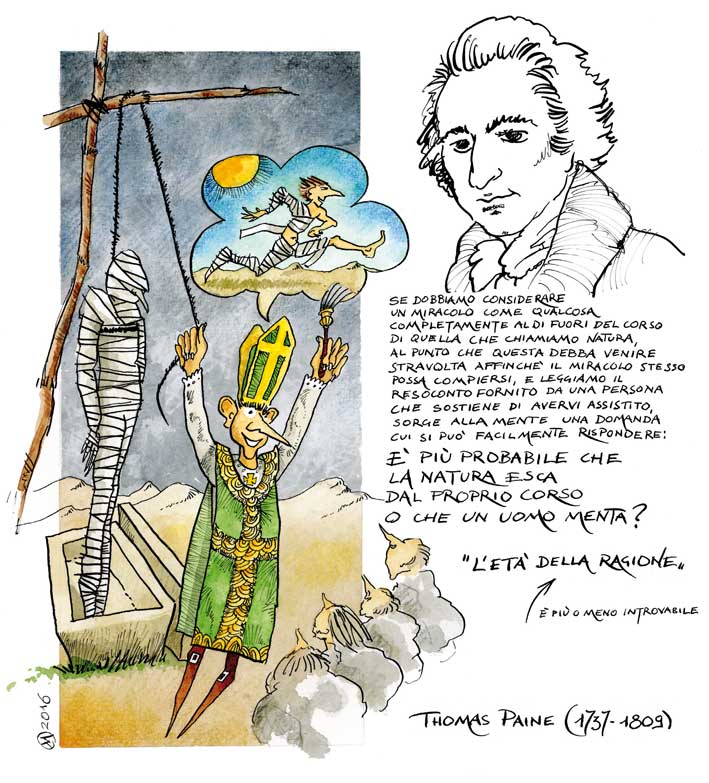 SE DOBBIAMO CONSIDERARE
UN MIRACOLO COME QUALCOSA
COMPLETAMENTE AL DI FUORI DEL CORSO
DI QUELLA CHE CHIAMIAMO NATURA,
AL PUNTO CHE QUESTA DEBBA VENIRE
STRAVOLTA AFFINCHÈ IL MIRACOLO STESSO
POSSA COMPIERSI, E LEGGIAMO IL
RESOCONTO FORNITO DA UNA PERSONA
CHE SOSTIENE DI AVERVI ASSISTITO,
SORGE ALLA MENTE UNA DOMANDA
CUI SI PUÒ FACILMENTE RISPONDERE:
È PIÙ PROBABILE CHE
LA NATURA ESCA
DAL PROPRIO CORSO
O CHE UN UOMO MENTA?
"L'ETÀ DELLA RAGIONE"
È PIÙ O MENO INTROVABILE
THOMAS PAINE (1737-1809)
2016